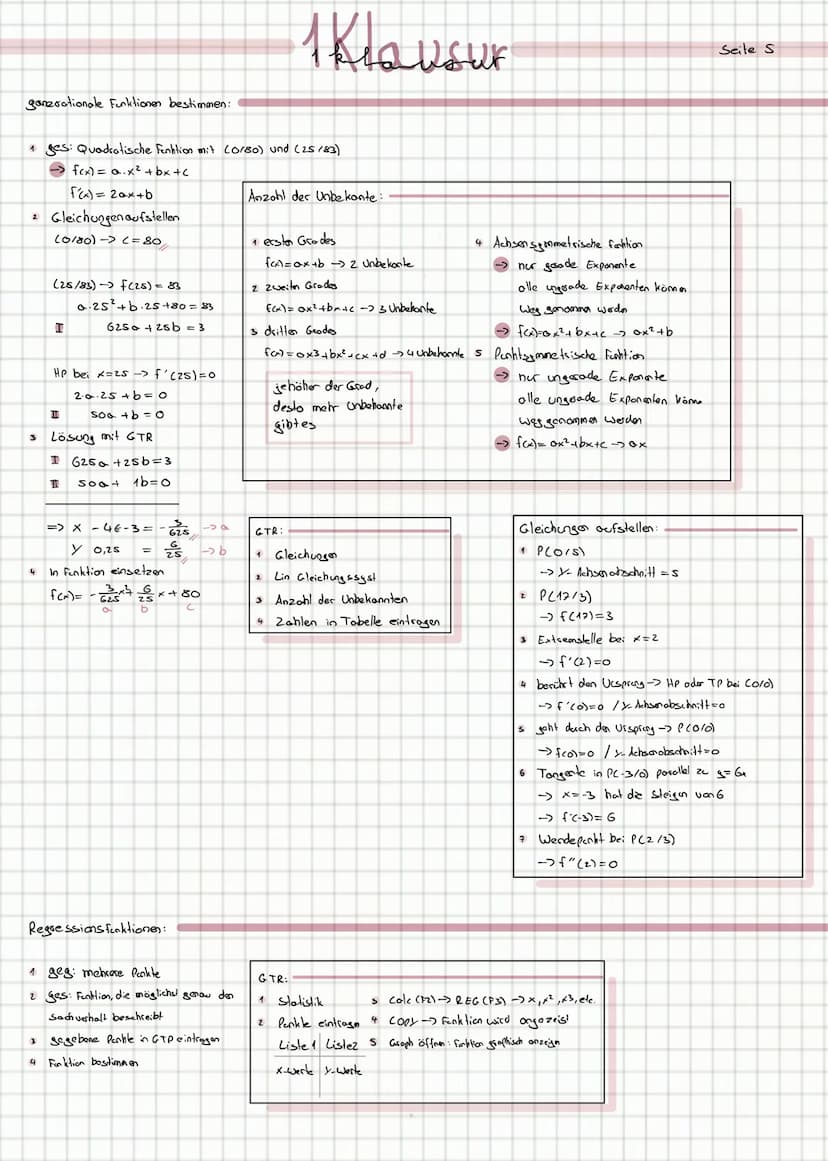 1Klausur
1 klausur
Seite 5
ganzrationale Funktionen bestimmen:
1 ges: Quadratische Funktion mit (0/80) und (25/83)
→ f(x) = a·x² + bx + c
f'(x) = 2ax + b
2 Gleichungen aufstellen
(0/80) → c = 80
(25/83) → f(25) = 83
a·25² + b·25 + 80 = 83
I 625a + 25b = 3
HP bei x=25 → f'(25) = 0
2·a·25 + b = 0
II 50a + b = 0
3 Lösung mit GTR
I 625a + 25b = 3
II 50a + 1b = 0
=> x -4E-3 = -3/625 → a
y 0,25 = 6/25 → b
4 In Funktion einsetzen
f(x) = -3/625 x² + 6/25 x + 80
a b c
Anzahl der Unbekante:
1 ersten Grades
f(x) = ax + b → 2 Unbekante
2 zweiten Grades
f(x) = ax² + bx + c → 3 Unbekante
3 dritten Grades
f(x) = ax3 + bx² + cx + d → 4 Unbekannte
je höher der Grad,
desto mehr Unbekannte
gibt es
4 Achsensymmetrische Funktion
→ nur gerade Exponente
alle ungrade Exponenten können
weg genommen werden
→ f(x) = ax² + bx + c → ax² + b
5 Punktsymmetrische Funktion
→ nur ungerade Exponente
alle ungrade Exponenten könne
weggenommen werden
→ f(x) = ax² + bx + c → ax
GTR:
1 Gleichungen
2 Lin Gleichungssyst
3 Anzahl der Unbekannten
4 Zahlen in Tabelle eintragen
Gleichungen aufstellen:
1 P(0/5)
→ y-Achsenabschnitt = 5
2 P(17/3)
→ f(17) = 3
3 Extremstelle bei x=2
→ f'(2) = 0
4 berührt den Ursprung → HP oder TP bei (0/0)
→ f'(0) = 0 / y-Achsenabschnitt = 0
5 geht durch den Ursprung → P(0/0)
→ f(0) = 0 / y-Achsenabschnitt = 0
6 Tangente in P(-3/0) parallel zu y = 6x
→ x = -3 hat die Steigun von 6
→ f'(-3) = 6
7 Wendepunkt bei P(2/3)
→ f''(2) = 0
Regressionsfunktionen:
1 geg: mehrere Punkte
2 ges: Funktion, die möglichst genau den
Sachverhalt beschreibt
3 gegebene Punkte in GTP eintragen
4 Funktion bestimmen
GTR:
1 Statistik
2 Punkte eintragen
Liste 1 Liste 2
x-Werte y-Werte
3 Calc (F2) → REG (F3) → x, x², x3, etc.
4 COPY → Funktion wird angezeigt
5 Graph öffnen: Funktion graphisch anzeigen